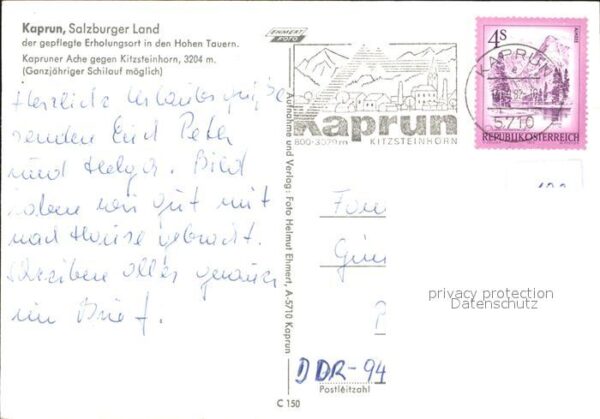 Kaprun, Salzburger Land
der gepflegte Erholungsort in den Hohen Tauern.
Kapruner Ache gegen Kitzsteinhorn, 3204 m.
(Ganzjähriger Schilauf möglich)
Herzliche Urlaubsgrüße
senden Euch Peter
und Helga. Bild
haben wir gut mit
nach Hause gebracht.
Schreiben alles genauer
im Brief.
Aufnahme und Verlag: Foto Helmut Ehmert, A-5710 Kaprun
C 150
EHMERT
FOTO
Kaprun
800-3029m KITZSTEINHORN
4S
ALMSEE
REPUBLIK ÖSTERREICH
KAPRUN
5710
Fam
Gün
privacy protection
Datenschutz
DDR-94
Postleitzahl